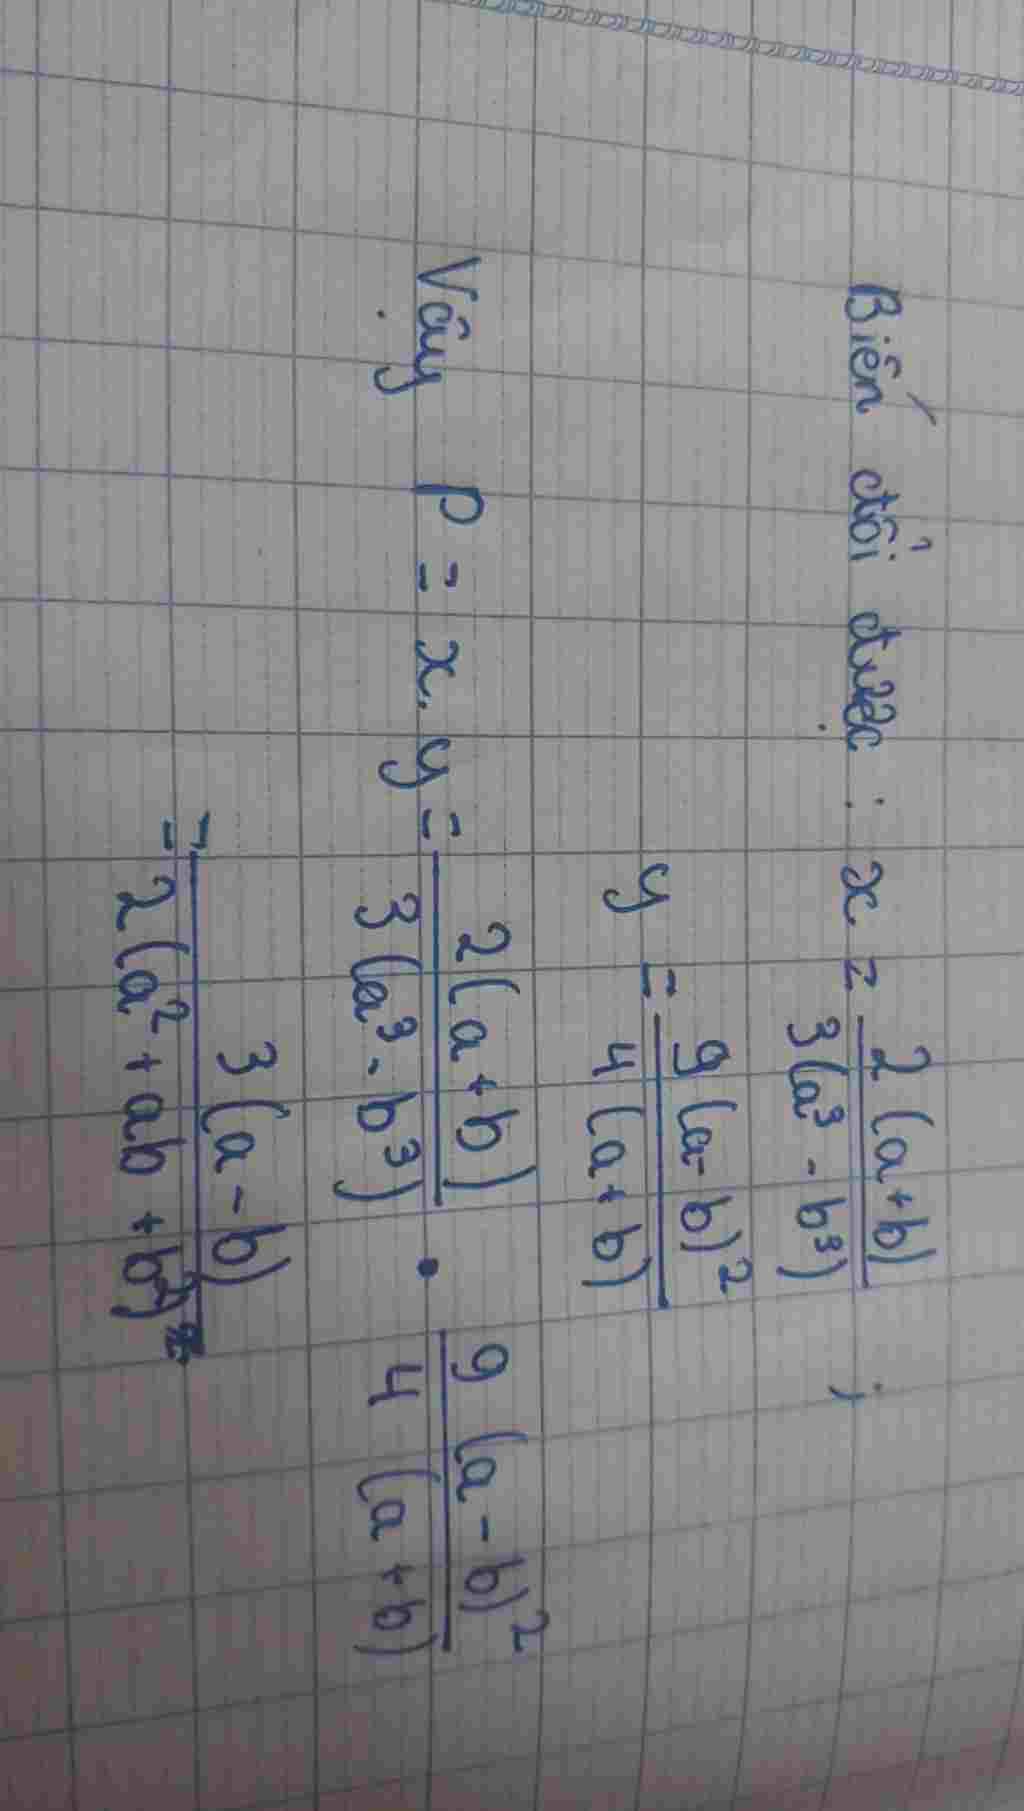 Biến đổi được : x = 2(a+b) / 3(a³ - b³) ;
y = 9(a-b)² / 4(a+b)
Vậy P = x.y = 2(a+b) / 3(a³-b³) . 9(a-b)² / 4(a+b)
= 3(a-b) / 2(a²+ab+b²)